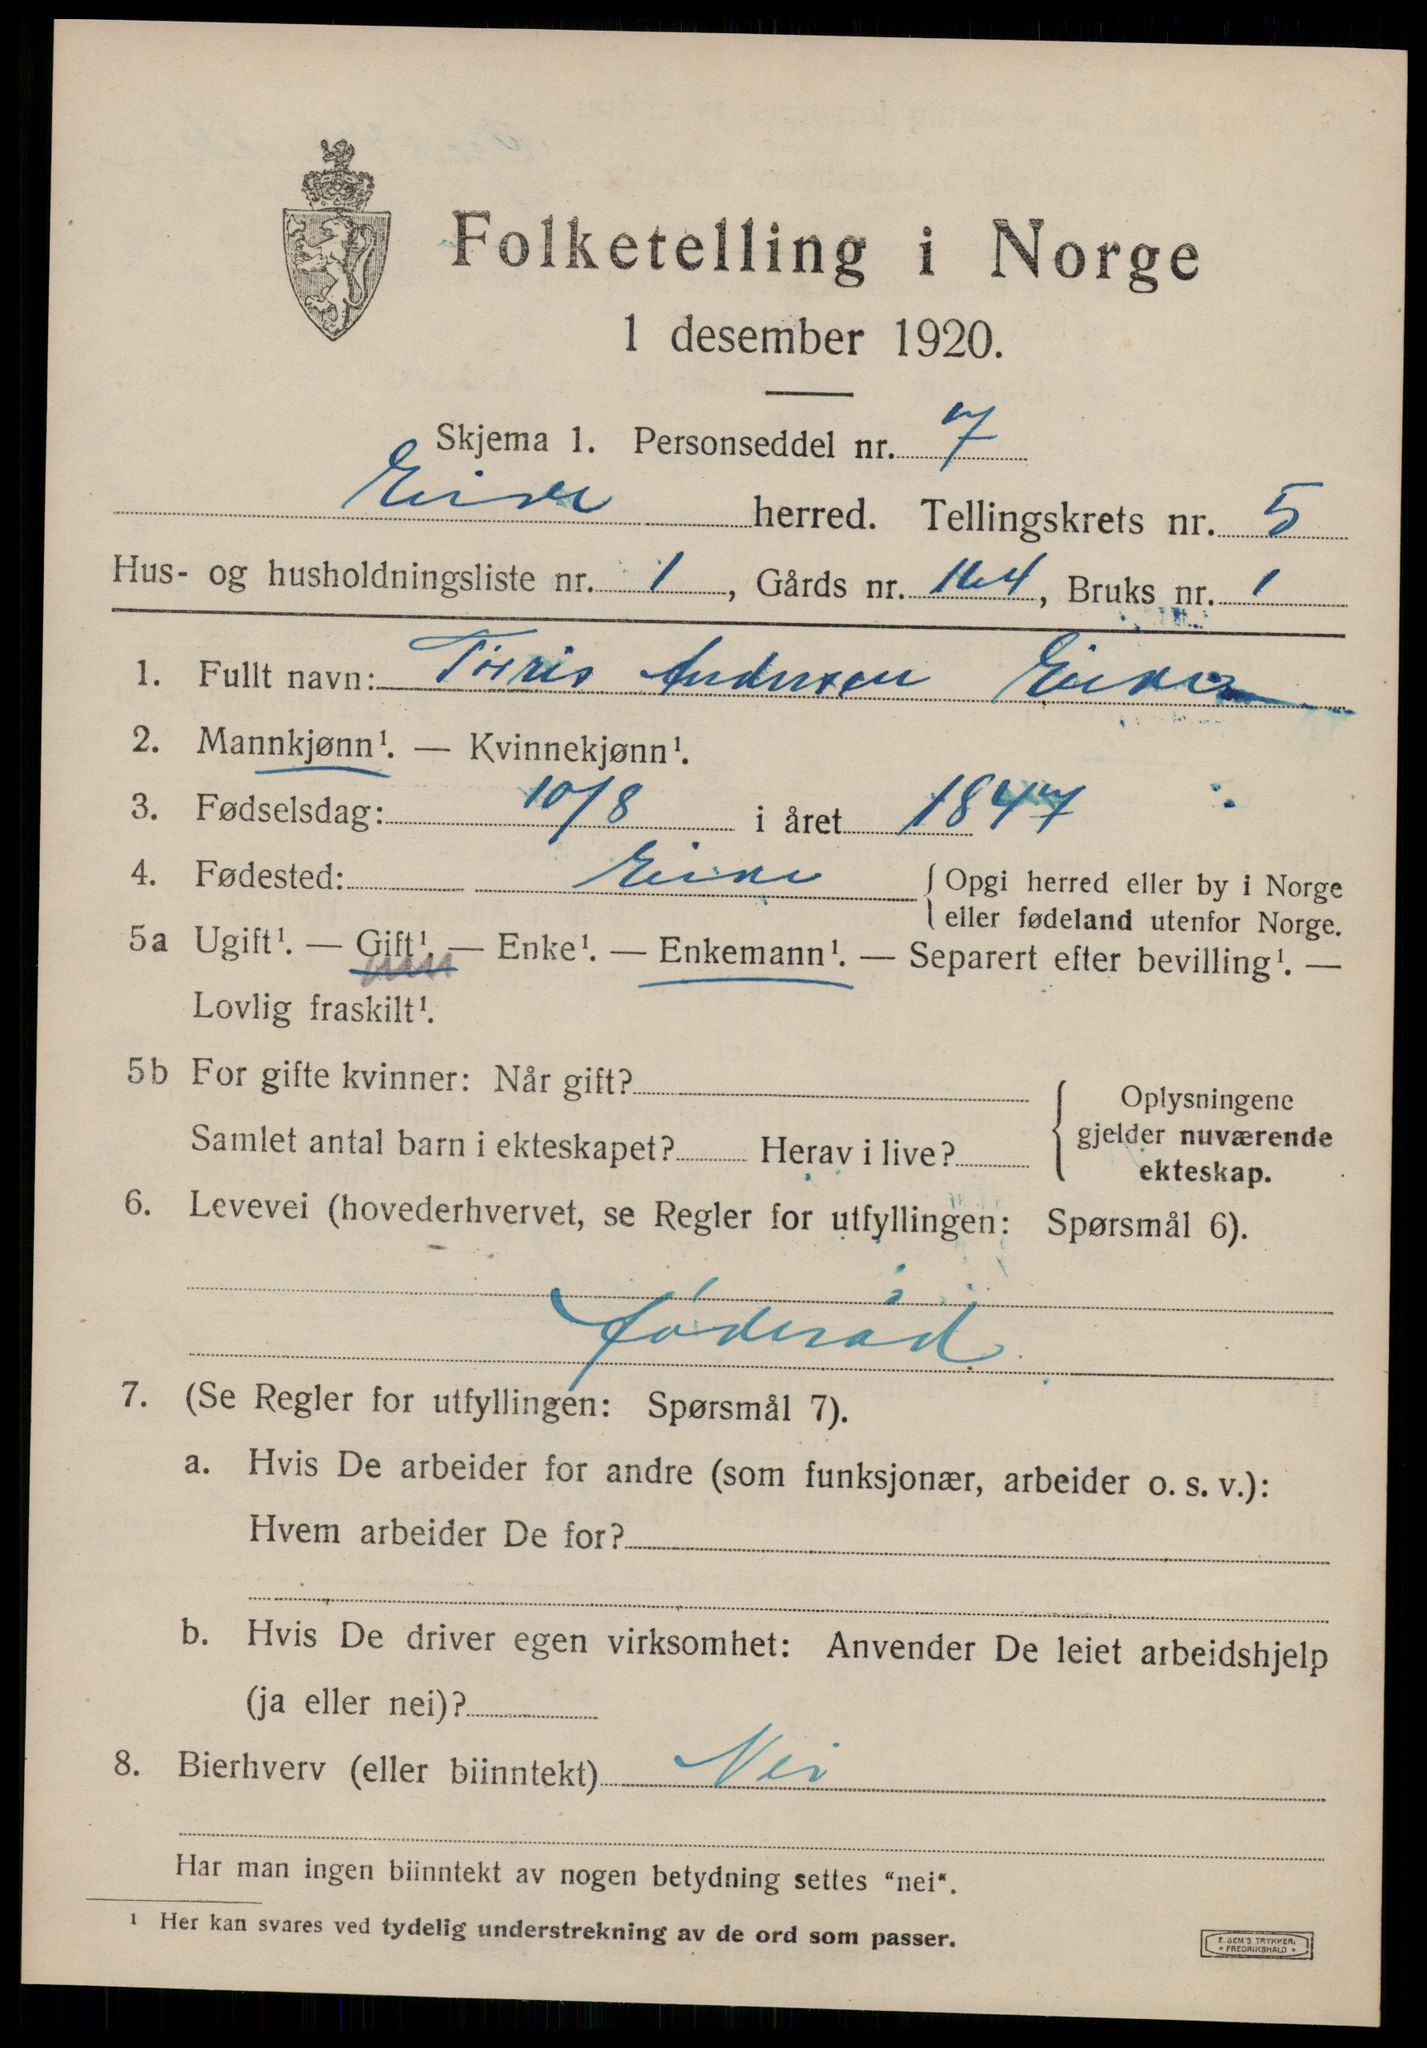 Folketelling i Norge
1 desember 1920.
Skjema 1. Personseddel nr. 7
Eikn herred. Tellingskrets nr. 5
Hus- og husholdningsliste nr. 1, Gårds nr. 164, Bruks nr. 1
1. Fullt navn: Torris Andersen
2. Mannkjønn¹. — Kvinnekjønn¹.
3. Fødselsdag: 10/8 i året 1847
4. Fødested: { Opgi herred eller by i Norge
eller fødeland utenfor Norge.
5a Ugift¹. — Gift¹. — Enke¹. — Enkemann¹. — Separert efter bevilling¹. —
Lovlig fraskilt¹.
5b For gifte kvinner: Når gift? { Oplysningene
Samlet antal barn i ekteskapet? Herav i live? gjelder nuværende
ekteskap.
6. Levevei (hovederhvervet, se Regler for utfyllingen: Spørsmål 6).
føderåd
7. (Se Regler for utfyllingen: Spørsmål 7).
a. Hvis De arbeider for andre (som funksjonær, arbeider o. s. v.):
Hvem arbeider De for?
b. Hvis De driver egen virksomhet: Anvender De leiet arbeidshjelp
(ja eller nei)?
8. Bierhverv (eller biinntekt) Nei
Har man ingen biinntekt av nogen betydning settes "nei".
¹ Her kan svares ved tydelig understrekning av de ord som passer.
E. SEM'S TRYKKERI
• FREDRIKSHALD •